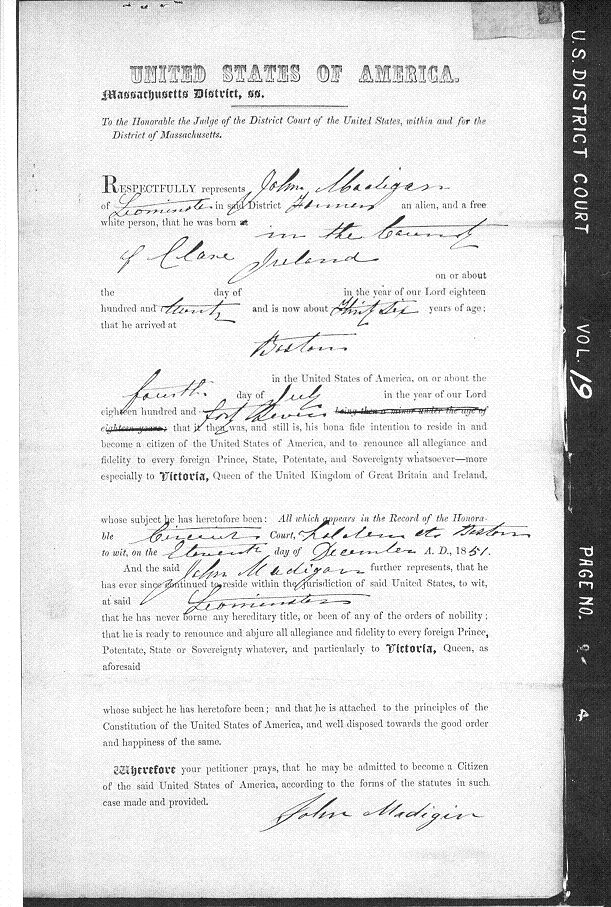 UNITED STATES OF AMERICA.
Massachusetts District, ss.
To the Honorable the Judge of the District Court of the United States, within and for the
District of Massachusetts.
RESPECTFULLY represents John Madigan
of Leominster in said District Farmer an alien, and a free
white person, that he was born at
in the County
of Clare Ireland
on or about
the day of in the year of our Lord eighteen
hundred and twenty and is now about Thirty Six years of age;
that he arrived at
Boston
in the United States of America, on or about the
fourth day of July in the year of our Lord
eighteen hundred and forty Seven being then a minor under the age of
eighteen years; that it then was, and still is, his bona fide intention to reside in and
become a citizen of the United States of America, and to renounce all allegiance and
fidelity to every foreign Prince, State, Potentate, and Sovereignty whatsoever—more
especially to Victoria, Queen of the United Kingdom of Great Britain and Ireland,
whose subject he has heretofore been: All which appears in the Record of the Honora-
ble Circuit Court, holden at Boston
to wit, on the Eleventh day of December A. D., 1851.
And the said John Madigan further represents, that he
has ever since continued to reside within the jurisdiction of said United States, to wit,
at said Leominster
that he has never borne any hereditary title, or been of any of the orders of nobility;
that he is ready to renounce and abjure all allegiance and fidelity to every foreign Prince,
Potentate, State or Sovereignty whatever, and particularly to Victoria, Queen, as
aforesaid
whose subject he has heretofore been; and that he is attached to the principles of the
Constitution of the United States of America, and well disposed towards the good order
and happiness of the same.
Wherefore your petitioner prays, that he may be admitted to become a Citizen
of the said United States of America, according to the forms of the statutes in such
case made and provided.
John Madigin
U.S. DISTRICT COURT
VOL. 19
PAGE NO.